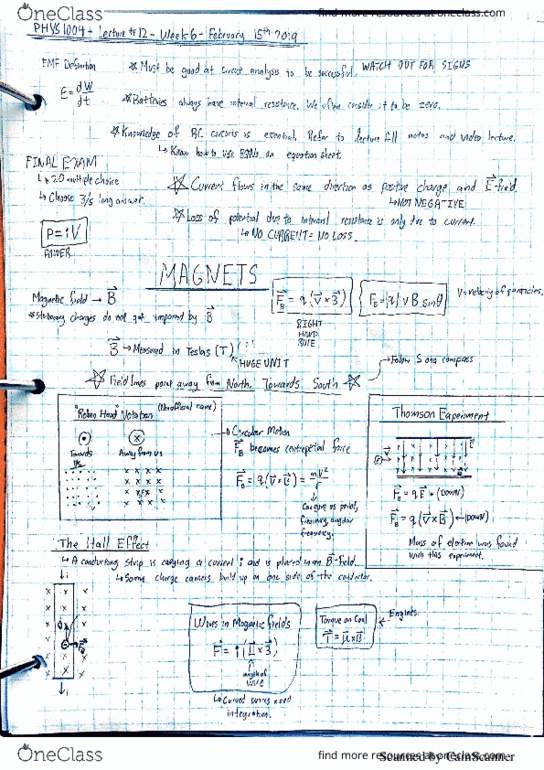 OneClass
find more resources at oneclass.com
PHYS 1004 - Lecture #12 - Week 6 - February 15th 2019
EMF Definition
* Must be good at circuit analysis to be successful. WATCH OUT FOR SIGNS
E = dW/dt
* Batteries always have internal resistance. We often consider it to be zero.
* Knowledge of RC circuits is essential. Refer to lecture #11 notes and video lecture.
↳ Know how to use on equation sheet.
FINAL EXAM
↳ 20 multiple choice
↳ Choose 3/5 long answer.
☆ Current flows in the same direction as positive charge and E-field.
↳ NOT NEGATIVE
☆ Loss of potential due to internal resistance is only due to current.
↳ NO CURRENT = NO LOSS.
P = iV
POWER
MAGNETS
F_B = q(v×B)
F_B = |q| v B sinθ
V = velocity of particles.
RIGHT
HAND
RULE
Magnetic field → B
* Stationary charges do not get impacted by B
B → Measured in Teslas (T)
↳ HUGE UNIT
→ Follow S on a compass
☆ Field lines point away from North. Towards South ☆
"Robin Hood" Notation (Unofficial name)
Towards Us
Away from us
→ Circular Motion
F_B becomes centripetal force
F_B = q(v×B) = mv²/r
Can give us period, frequency, angular frequency.
Thomson Experiment
F_E = qE → (DOWN)
F_B = q(v×B) ← (DOWN)
Mass of electron was found
with this experiment.
The Hall Effect
↳ A conducting strip is carrying a current i and is placed in a B-field.
↳ Some charge carriers build up on one side of the conductor.
Wires in Magnetic fields
F = i(L×B)
length of wire
↳ Curved wires need integration.
Torque on Coil
τ = μ×B
← Engines
OneClass
find more resources at oneclass.com
Scanned by CamScanner